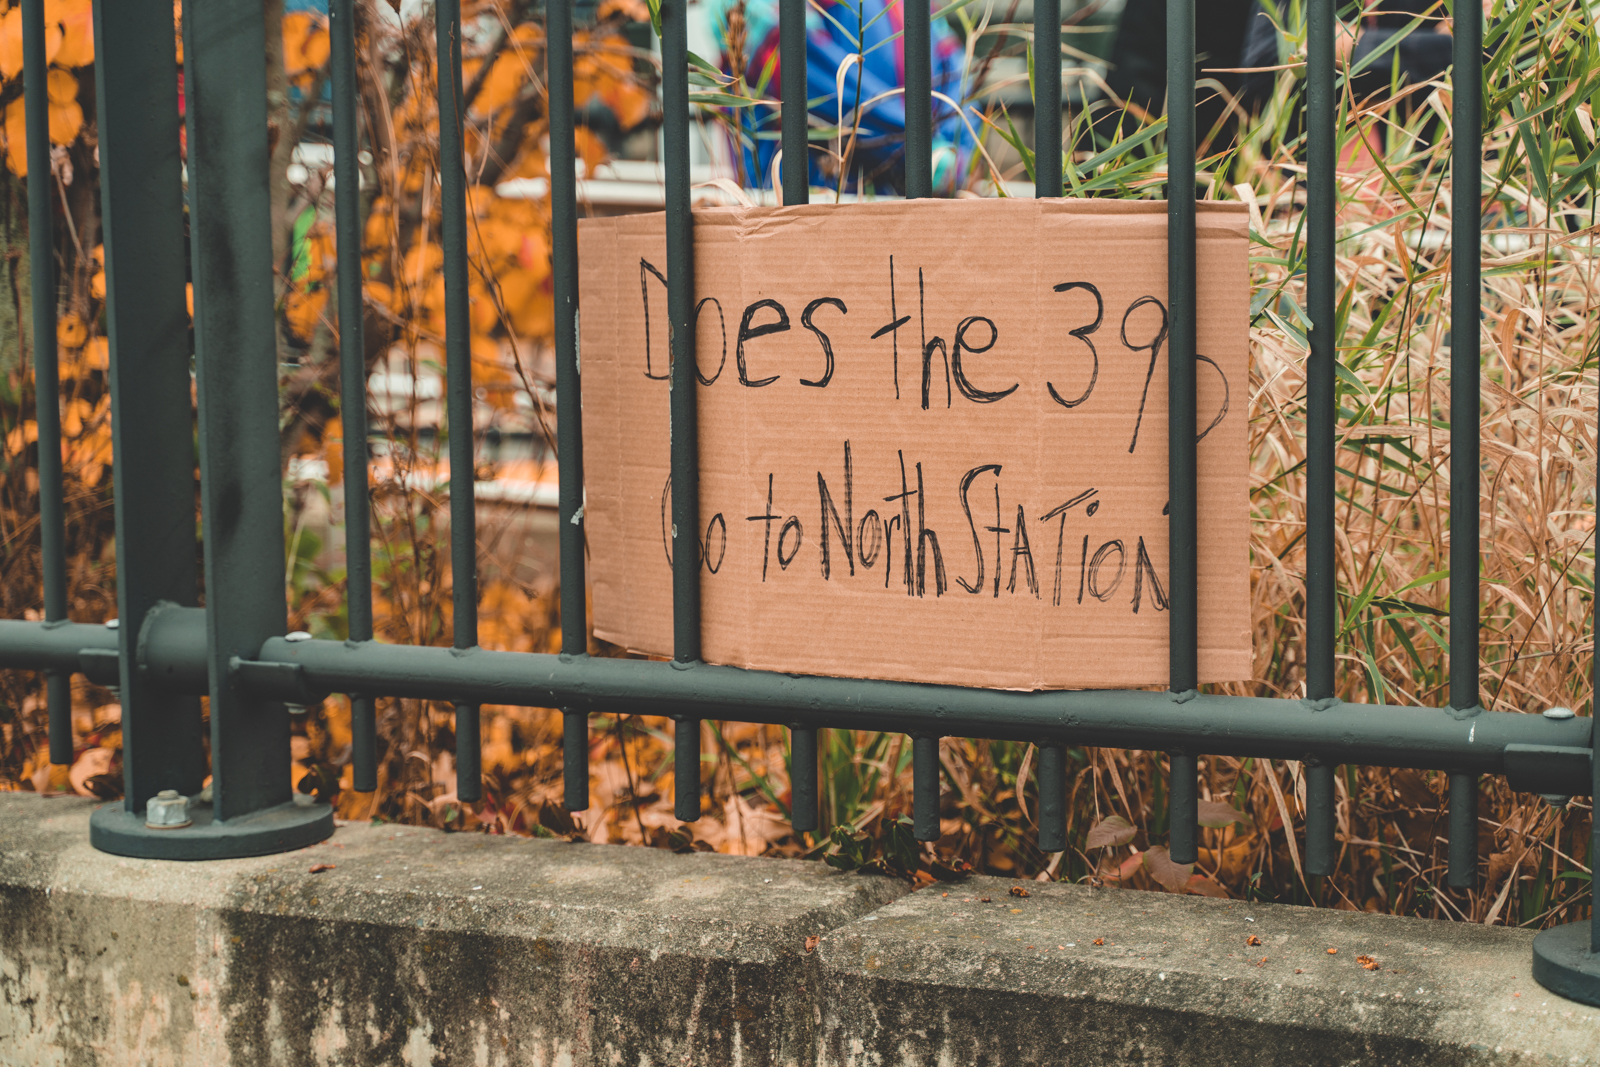 Does the
Go to North Station